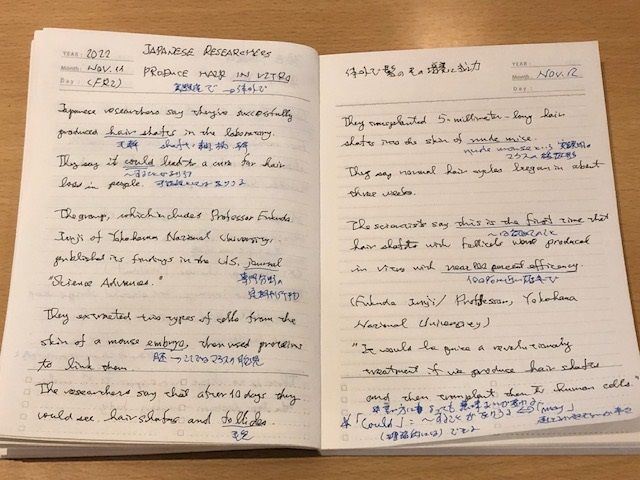 YEAR: 2022
Month: NOV. 11
Day: (FRI)
JAPANESE RESEARCHERS
PRODUCE HAIR IN VITRO
実験室で → 体外で
Japanese researchers say they've successfully
produced hair shafts in the laboratory.
They say it could lead to a cure for hair
loss in people.
The group, which includes Professor Fukuda
Junji of Yokohama National University,
published its findings in the U.S. journal
"Science Advances."
専門分野の
定期刊行物
They extracted two types of cells from the
skin of a mouse embryo, then used proteins
to link them.
胚 → ここではマウスの胎児
The researchers say that after 10 days they
could see hair shafts and follicles.
毛包
体外で髪のもの培養に成功
YEAR:
Month: NOV. 12
Day:
They transplanted 5-millimeter-long hair
shafts into the skin of nude mice.
nude mouse
They say normal hair cycles began in about
three weeks.
The scientists say this is the first time that
hair shafts with follicles were produced
in vitro with near 100 percent efficiency.
100%に近い効率で
(Fukuda Junji / Professor, Yokohama
National University)
"It would be quite a revolutionary
treatment if we produce hair shafts
and then transplant them to human cells."
※「could」=~することがありうる ⇔「may」
(理論的には) できる